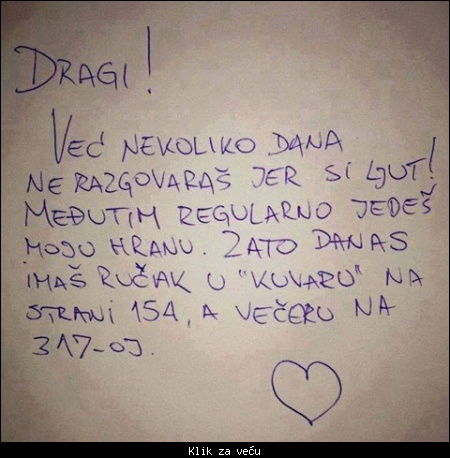 DRAGI!
VEĆ NEKOLIKO DANA
NE RAZGOVARAŠ JER SI LJUT!
MEĐUTIM REGULARNO JEDEŠ
MOJU HRANU. ZATO DANAS
IMAŠ RUČAK U "KUVARU" NA
STRANI 154, A VEČERU NA
317-OJ.
Klik za veču